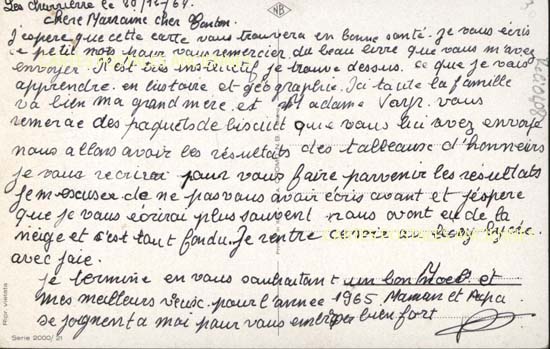 Les Charrière le 20/12/64
chère Marraine cher Tonton.
J'espere que cette carte vous trouvera en bonne santé. Je vous écris
ce petit mots pour vous remercier du beau livre que vous m'avez
envoyer. Il est très instructif je trouve dessus. ce que je vais
apprendre. en histoire et géographie. Ici toute la famille
va bien ma grand mère et Madame vous
remercie des paquets de biscuit que vous lui avez envoyé
nous allons avoir les résultats des tableaux d'honneurs
je vous recrirai pour vous faire parvenir les résultats
Je m'excuser de ne pas vous avoir écris avant et j'éspère
que je vous écrirai plus souvent nous avont eu de la
nèige et s'est tout fondu. Je rentre au lycée
avec joie.
je termine en vous souhaitant un bon Noel. et
mes meilleurs veux. pour l'année 1965 Maman et Papa
se joignent a moi pour vous embrasser bien fort
NB
Ripr. vietata
Serie 2000/21